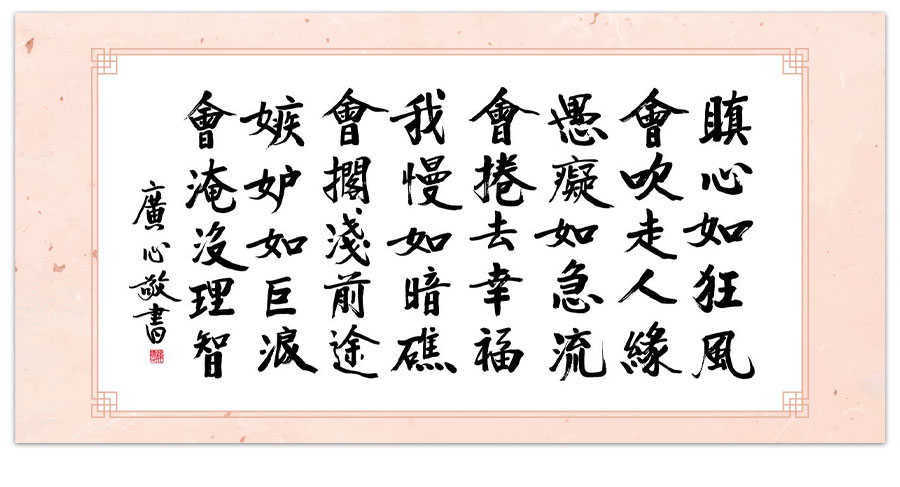 瞋心如狂風
會吹走人緣
愚癡如急流
會捲去幸福
我慢如暗礁
會擱淺前途
嫉妒如巨浪
會淹沒理智
廣心敬書